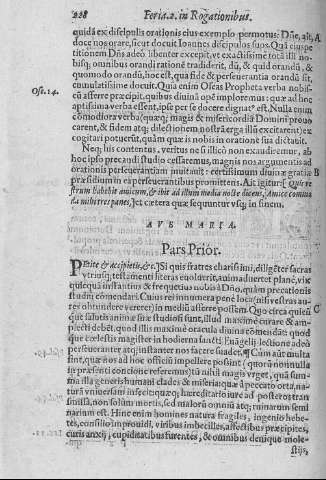 228 Feria.2. in Rogationibus.
quidã ex discipulis orationis eius exemplo permotus: Dñe, ait, A
doce nos orare, sicut docuit Ioannes discipulos suos. Quã eiusce
titionem Dñs adeò libenter excepit, vt exactissimè totã illi no-
bisq; omnibus orandi rationē tradiderit, dũ, & quid orandũ, &
quomodo orandũ, hoc est, qua fide & perseuerantia orandũ sit,
cumulatissimè docuit. Quia enim Oseas Propheta verba nobis-
Ose.14. cũ afferre præcipit, quibus diuinã opē imploremus: quæ ad hoc
aptissima verba essent, ipse per se docere dignatꝰ est. Nulla enim
commodiora verba (quæq; magis & misericordiã Domini prouo
carent, & fidem atq; dilectionem nostrã erga illũ excitarent) ex
cogitari potuerũt, quàm quæ is nobis in oratione sua dictauit.
Neq; his contentus, veritus ne si illicò non exaudiremur, ab
hoc ipso precandi studio cessaremus, magnis nos argumentis ad
orationis perseuerantiam inuitauit: certissimum diuinæ gratiæ B
præsidium ea perseuerantibus promittens. Ait igitur: Quis ve
strum habebit amicum, & ibit ad illum media nocte dicens, Amice commo
da mihi tres panes, Et cætera quæ sequuntur vsq; in finem.
AVE MARIA.
Pars Prior.
Petite & accipietis, &c. Si quis fratres charissimi, diligēter sacras
vtriusq; testamenti literas euoluerit, animaduertet planè, vix
quicquã instantius & frequētius nobis à Dño, quàm precationis
studiũ cōmendari. Cuius rei innumera penè loca (nisi vestras au-
res obtundere vererer) in mediũ afferre possem. Quo circa quiēũ C
quæ salutis animæ suæ studiosi sunt, illud maximè curare & am-
plecti debēt, quod illis maximè oracula diuina cōmendāt: quod
quæ cœlestis magister in hodierna sancti Euāgelij lectione adeò
perseueranter atq; instanter nos facere suadet. ¶ Cùm aūt multa
sint, quæ nos ad hoc officiũ impellere possint (quorũ nonnulla
in præsenti concione referemus) tũ nihil magis vrget, quã sum-
ma illa generis humani clades & miseria, quæ à peccato orta, na-
turã vniuersam infecit: quæq; hæreditario iure ad posteros tran
smissa, non solùm mortis, sed malorũ omniũ atq; ruinarum semi
narium est. Hinc enim homines natura fragiles, ingenio hebe-
tes, consilio improuidi, viribus imbecilles, affectibus præcipites,
curis anxij, cupiditatibus furentes, & omnibus denique mole-
stijs,